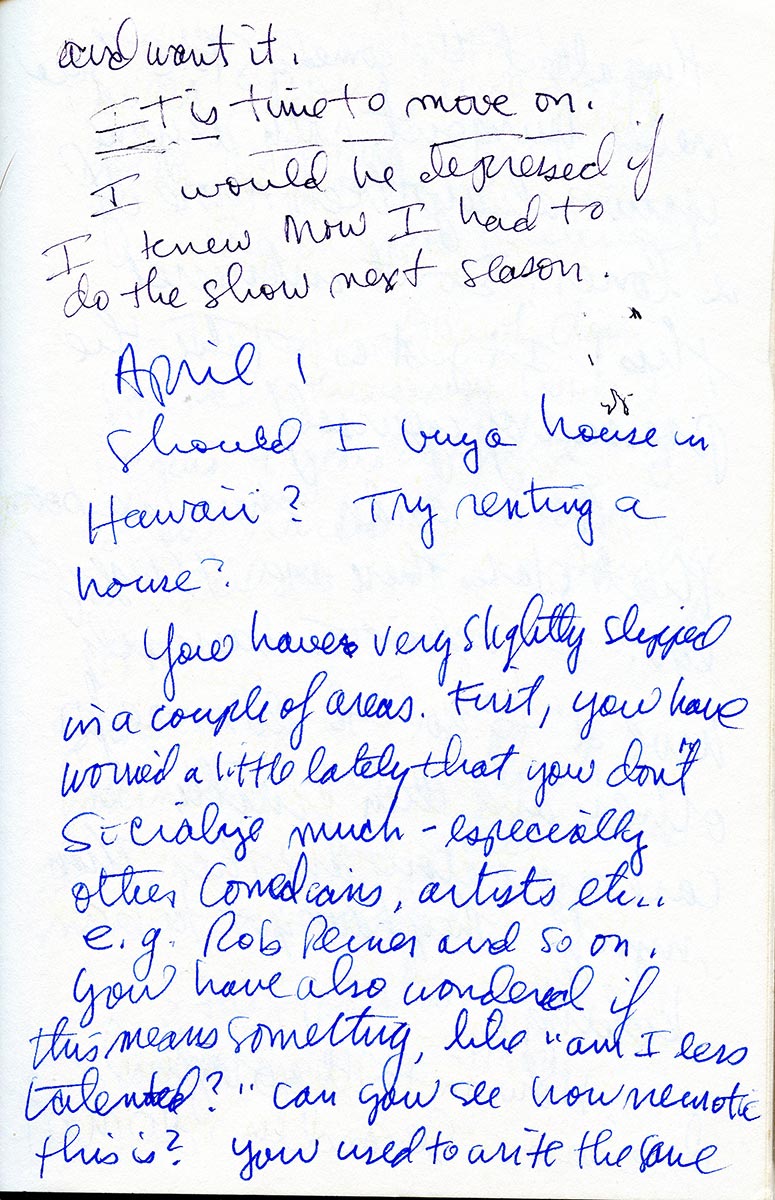 and want it.
It is time to move on.
I would be depressed if
I knew now I had to
do the show next season.
April 1
Should I buy a house in
Hawaii? Try renting a
house?
You have very slightly slipped
in a couple of areas. First, you have
worried a little lately that you don't
Socialize much - especially
other Comedians, artists etc..
e.g. Rob Reiner and so on.
You have also wondered if
this means something, like "am I less
talented?" can you see how neurotic
this is? You used to write the same